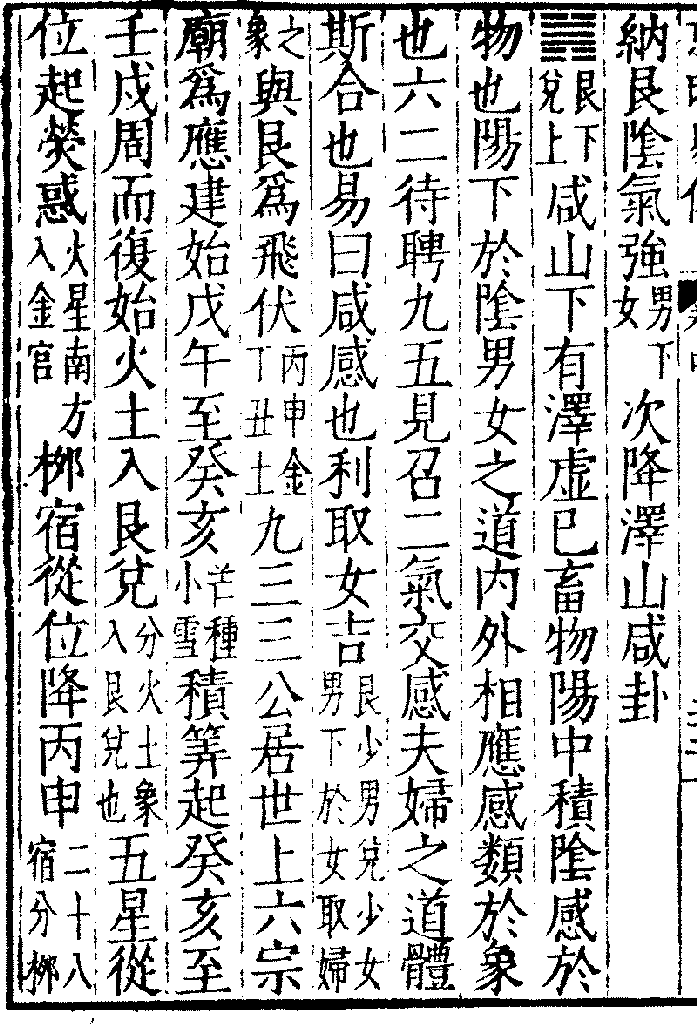 納艮陰氣強男下女次降澤山咸卦
艮下兌上咸山下有澤虛已畜物陽中積陰感於
物也陽下於陰男女之道內外相應感類於象
也六二待聘九五見召二氣交感夫婦之道體
斯合也易曰咸感也利取女吉艮少男兌少女男下於女取婦
之象與艮為飛伏丙申金丁丑土九三三公居世上六宗
廟爲應建始戊午至癸亥芒種小雪積筭起癸亥至
壬戍周而復始火土入艮兌分火土象入艮兌也五星從
位起熒惑火星南方入金宮桞宿從位降丙申二十八宿分桞